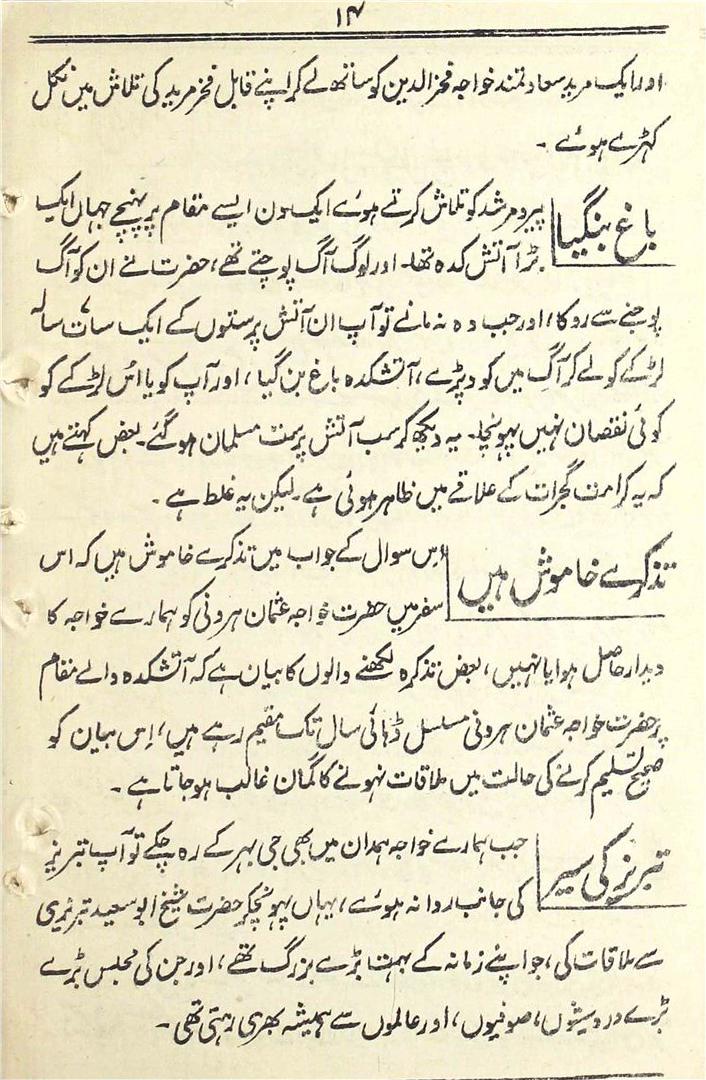 ۱۴
اور ایک مرید سعادتمند خواجہ فخرالدین کو ساتھ لے کر اپنے قابل فخر مرید کی تلاش میں نکل
کہڑے ہوئے ۔
باغ بنگیا
پیر و مرشد کو تلاش کرتے ہوئے ایک دن ایسے مقام پر پہنچے جہاں ایک
بڑا آتش کدہ تھا۔ اور لوگ آگ پوجتے تھے، حضرت نے ان کو آگ
پوجنے سے روکا، اور جب وہ نہ مانے تو آپ ان آتش پرستوں کے ایک سات سالہ
لڑکے کو لے کر آگ میں کود پڑے، آتشکدہ باغ بن گیا، اور آپ کو یا اُس لڑکے کو
کوئی نقصان نہیں پہونچا۔ یہ دیکھ کر سب آتش پرست مسلمان ہوگئے۔ بعض کہتے ہیں
کہ یہ کرامت گجرات کے علاقے میں ظاہر ہوئی ہے۔ لیکن یہ غلط ہے ۔
تذکرے خاموش ہیں
اس سوال کے جواب میں تذکرے خاموش ہیں کہ اس
سفر میں حضرت خواجہ عثمان ہرونی کو ہمارے خواجہ کا
دیدار حاصل ہوا یا نہیں، بعض تذکرہ لکھنے والوں کا بیان ہے کہ آتشکدہ والے مقام
پر حضرت خواجہ عثمان ہرونی مسلسل ڈہائی سال تک مقیم رہے ہیں، اِس بیان کو
صحیح تسلیم کرنے کی حالت میں ملاقات نہونے کا گمان غالب ہو جاتا ہے ۔
تبریز کی سیر
جب ہمارے خواجہ ہمدان میں بھی جی بہر کے رہ چکے تو آپ تبریز
کی جانب روانہ ہوئے، یہاں پہونچکر حضرت شیخ ابو سعید تبریزی
سے ملاقات کی، جو اپنے زمانہ کے بہت بڑے بزرگ تھے، اور جن کی مجلس بڑے
بڑے درویشوں، صوفیوں، اور عالموں سے ہمیشہ بھری رہتی تھی ۔